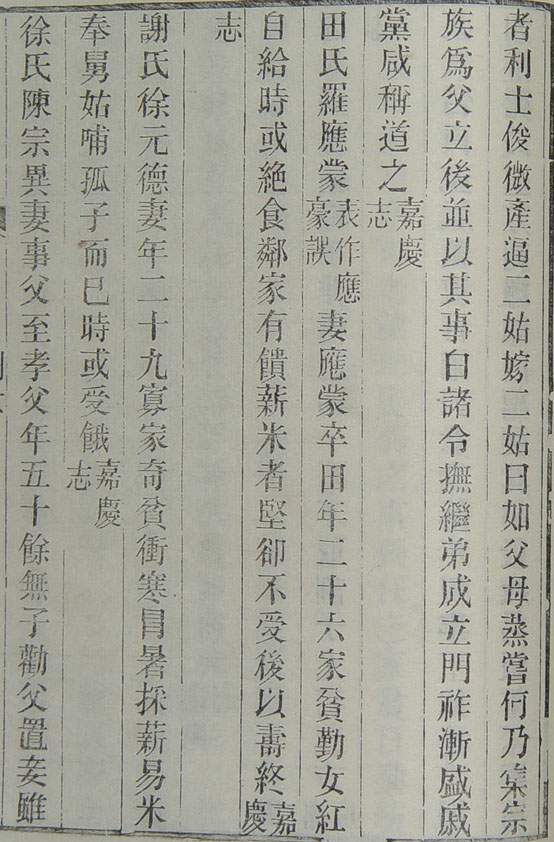 者利士俊微產逼二姑嫁二姑曰如父母蒸嘗何乃集宗
族爲父立後並以其事白諸令撫繼弟成立門祚漸盛戚
黨咸稱道之嘉慶志
田氏羅應蒙表作應豪誤妻應蒙卒田年二十六家貧勤女紅
自給時或絕食鄰家有饋薪米者堅卻不受後以壽終嘉慶
志
謝氏徐元德妻年二十九寡家奇貧衝寒冒暑採薪易米
奉舅姑哺孤子而已時或受餓嘉慶志
徐氏陳宗異妻事父至孝父年五十餘無子勸父置妾雖